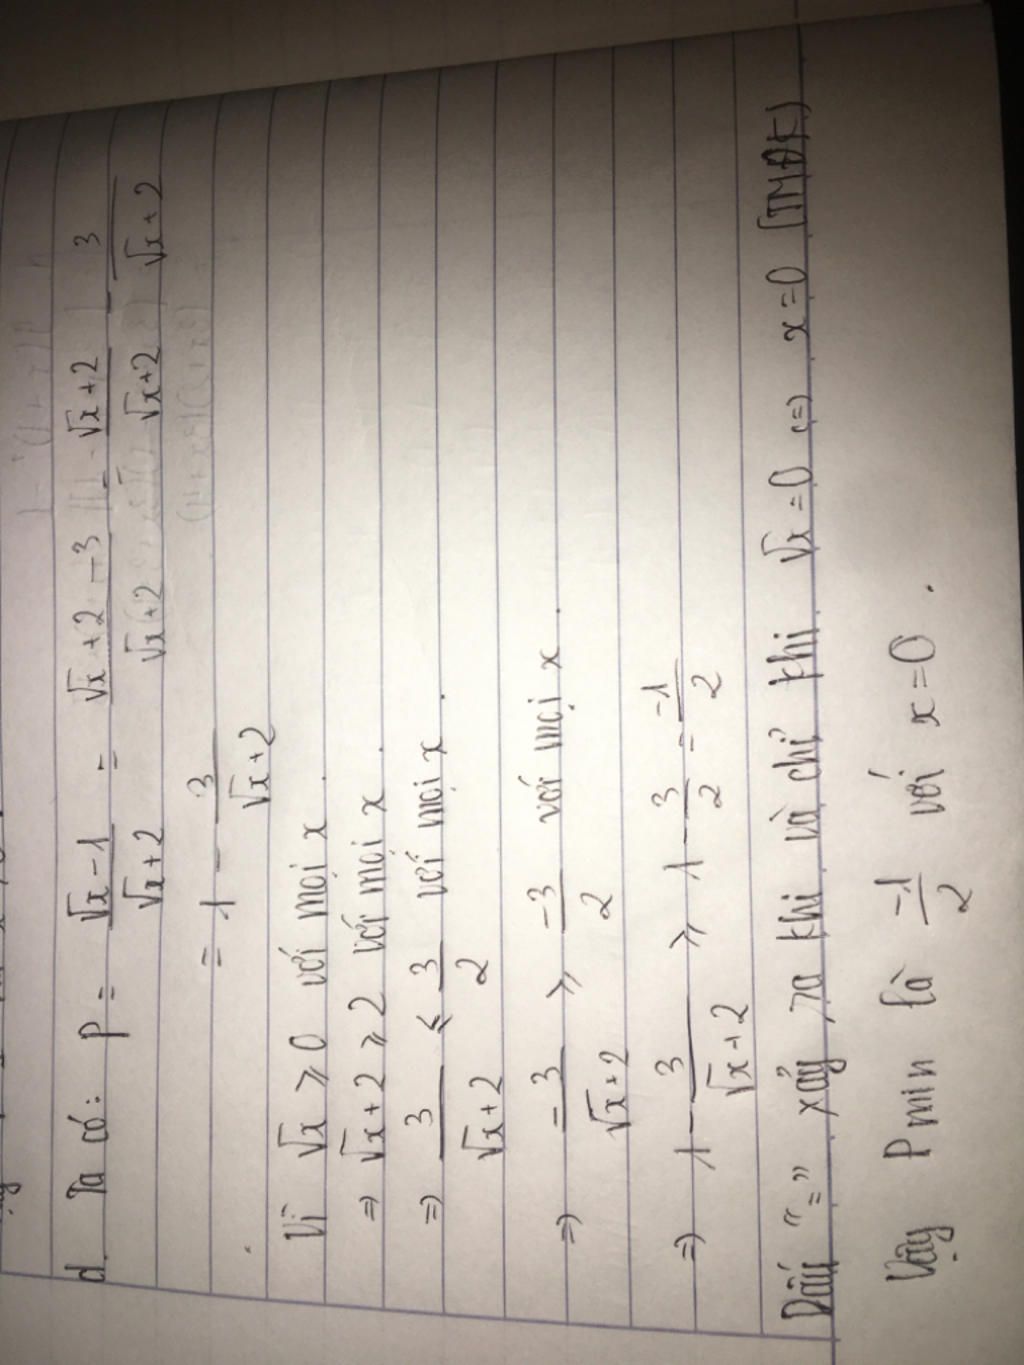 d. Ta có: P = \frac{\sqrt{x}-1}{\sqrt{x}+2} = \frac{\sqrt{x}+2-3}{\sqrt{x}+2} = \frac{\sqrt{x}+2}{\sqrt{x}+2} - \frac{3}{\sqrt{x}+2}
= 1 - \frac{3}{\sqrt{x}+2}
Vì \sqrt{x} ⩾ 0 với mọi x.
⇒ \sqrt{x}+2 ⩾ 2 với mọi x.
⇒ \frac{3}{\sqrt{x}+2} ⩽ \frac{3}{2} với mọi x.
⇒ \frac{-3}{\sqrt{x}+2} ⩾ \frac{-3}{2} với mọi x.
⇒ 1 - \frac{3}{\sqrt{x}+2} ⩾ 1 - \frac{3}{2} = \frac{-1}{2}
Dấu "=" xảy ra khi và chỉ khi \sqrt{x} = 0 (=) x = 0 (TMĐK)
Vậy P min là \frac{-1}{2} với x = 0.